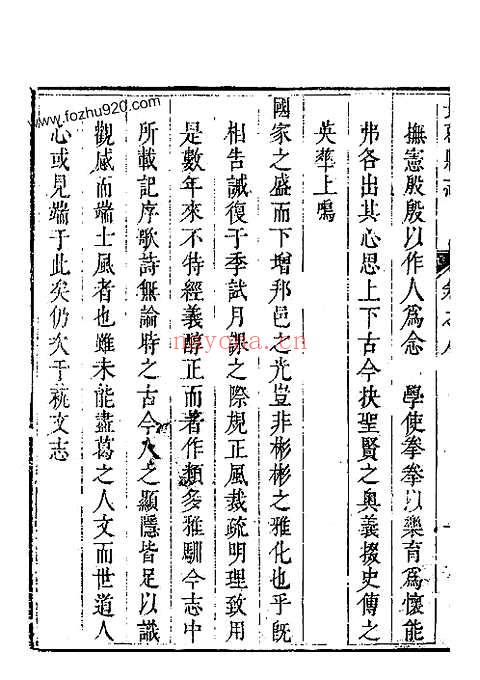 撫憲殷殷以作人爲念 學使拳拳以樂育爲懷能
弗各出其心思上下古今抉聖賢之奧義掇史傳之
英華上鳴
國家之盛而下增邦邑之光豈非彬彬之雅化也乎旣
相告誡復于季試月課之際規正風裁疏明理致用
是數年來不特經義醇正而著作類多雅馴今志中
所載記序歌詩無論時之古今人之顯隱皆足以識
觀感而端士風者也雖未能盡葛之人文而世道人
心或見端于此矣仍次于藝文志
www.fozhu920.com
nayona.cn